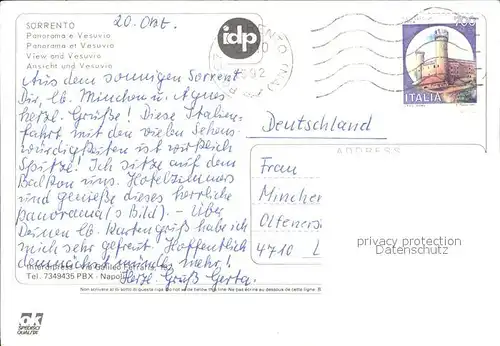 SORRENTO
Panorama e Vesuvio
Panorama et Vesuve
View and Vesuvio
Ansicht und Vesuv
20. Okt.
idp
700
ITALIA
Aus dem sonnigen Sorrent
Dir, lb. Minchen u. Agnes
herzl. Grüße! Diese Italien-
fahrt mit den vielen Sehens-
würdigkeiten ist wirklich
Spitze! Ich sitze auf dem
Balkon uns. Hotelzimmers
und genieße dieses herrliche
Panorama (s Bild). - Über
Deinen lb. Kartengruß habe ich
mich sehr gefreut. Hoffentlich
demnächst mehr!
Herzl. Gruß Gerta.
Deutschland
ADDRESS
Frau
Minchen
4710 L
privacy protection
Datenschutz
Tel. 7349435 PBX - Napoli
Non scrivere al di sotto di questa riga Do not write below this line Ne pas écrire au dessous de cette ligne B
ak
SPEDISCI
QUALITA'